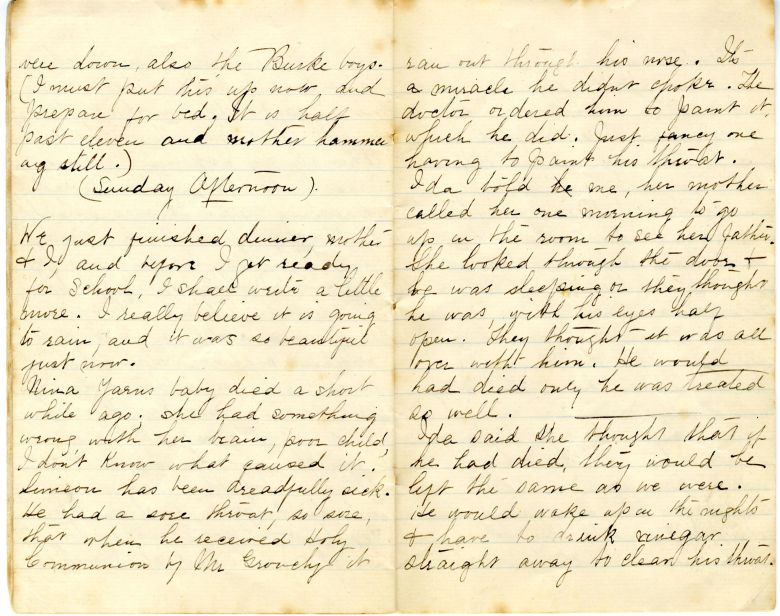 were down, also the Burke boys.
(I must put this up now, and
prepare for bed. It is half
past eleven and mother hammer
ing still.)
(Sunday Afternoon).
We just finished dinner, mother
& I, and before I get ready
for School, I shall write a little
more. I really believe it is going
to rain, and it was so beautiful
just now.
Nina Yarns baby died a short
while ago; she had something
wrong with her brain, poor child,
I don't know what caused it.
Simeon has been dreadfully sick.
He had a sore throat, so sore,
that when he received Holy
Communion by Mr Grouchy it
ran out through his nose. Its
a miracle he didnt choke. The
doctor ordered him to paint it,
which he did. Just fancy one
having to paint his throat.
Ida told me, her mother
called her one morning to go
up in the room to see her father.
She looked through the door &
he was sleeping or they thought
he was, with his eyes half
open. They thought it was all
over with him. He would
had died only he was treated
as well.
Ida said she thought that if
he had died, they would be
left the same as we were.
He would wake up in the nights
& have to drink vinegar
straight away to clear his throat.